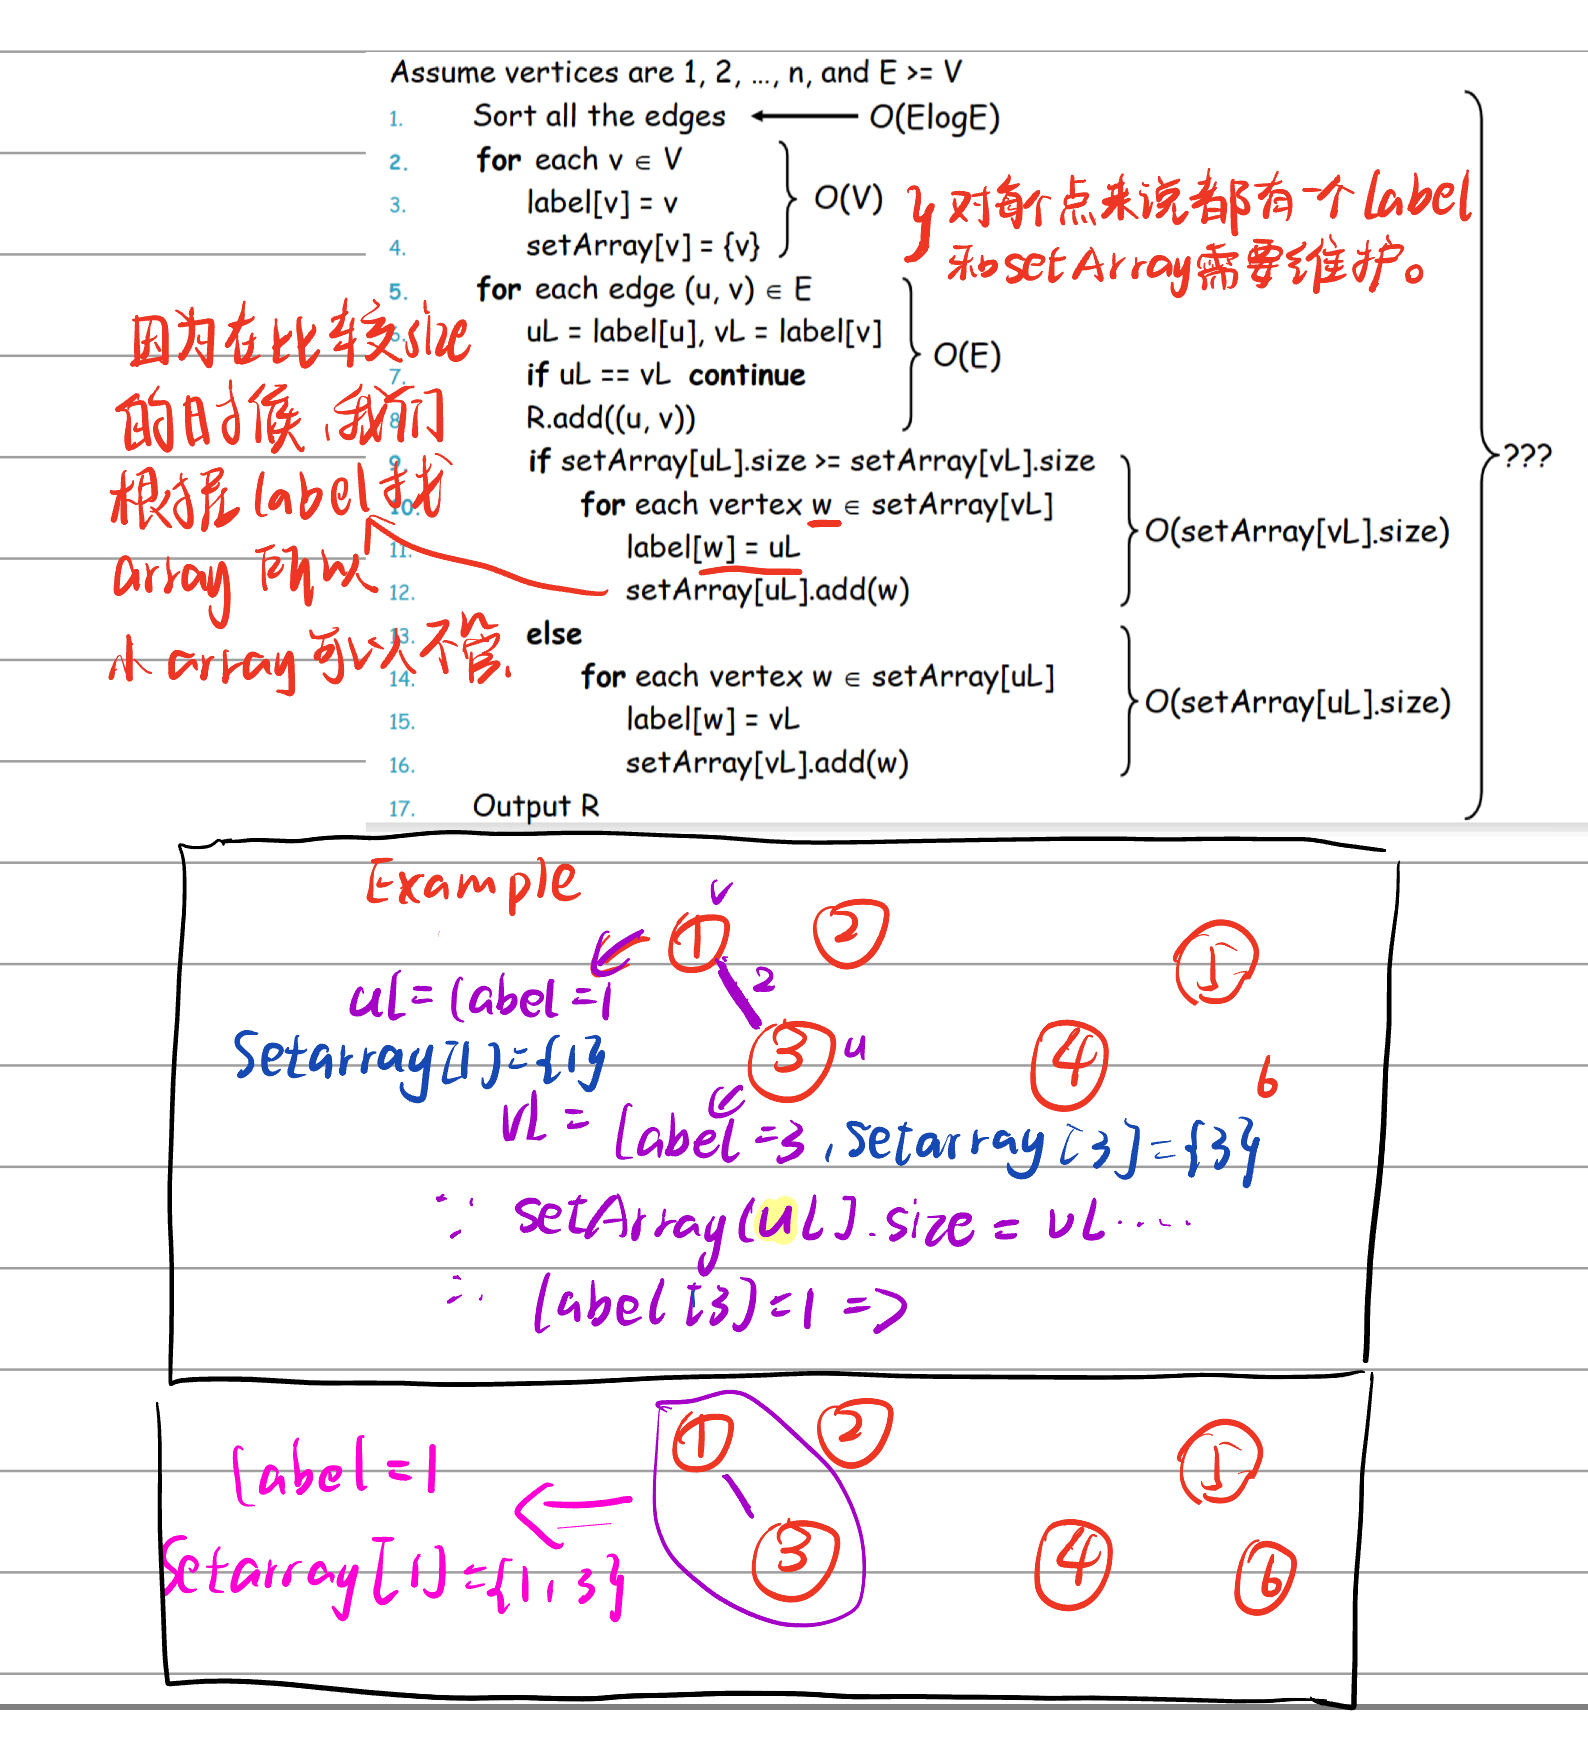 Assume vertices are 1, 2, ..., n, and E >= V
1. Sort all the edges O(ElogE)
2. for each v ∈ V
3. label[v] = v O(V) 对每个点来说都有一个label
4. setArray[v] = {v} 和setArray需要维护。
5. for each edge (u, v) ∈ E
6. uL = label[u], vL = label[v] O(E)
7. if uL == vL continue
8. R.add((u, v))
9. if setArray[uL].size >= setArray[vL].size ???
10. for each vertex w ∈ setArray[vL] O(setArray[vL].size)
11. label[w] = uL
12. setArray[uL].add(w)
13. else
14. for each vertex w ∈ setArray[uL] O(setArray[uL].size)
15. label[w] = vL
16. setArray[vL].add(w)
17. Output R
因为在比较size
的时候,我们
根据label找
array 所以
小array可以不管.
Example
v
1 2 5
2
uL=label=1
3 u 4 6
Setarray[1]={1}
vL = label=3, setarray[3]={3}
∵ setArray(uL].size = vL....
∴ label[3]=1 =>
1 2 5
label=1
3 4 6
Setarray[1]={1,3}